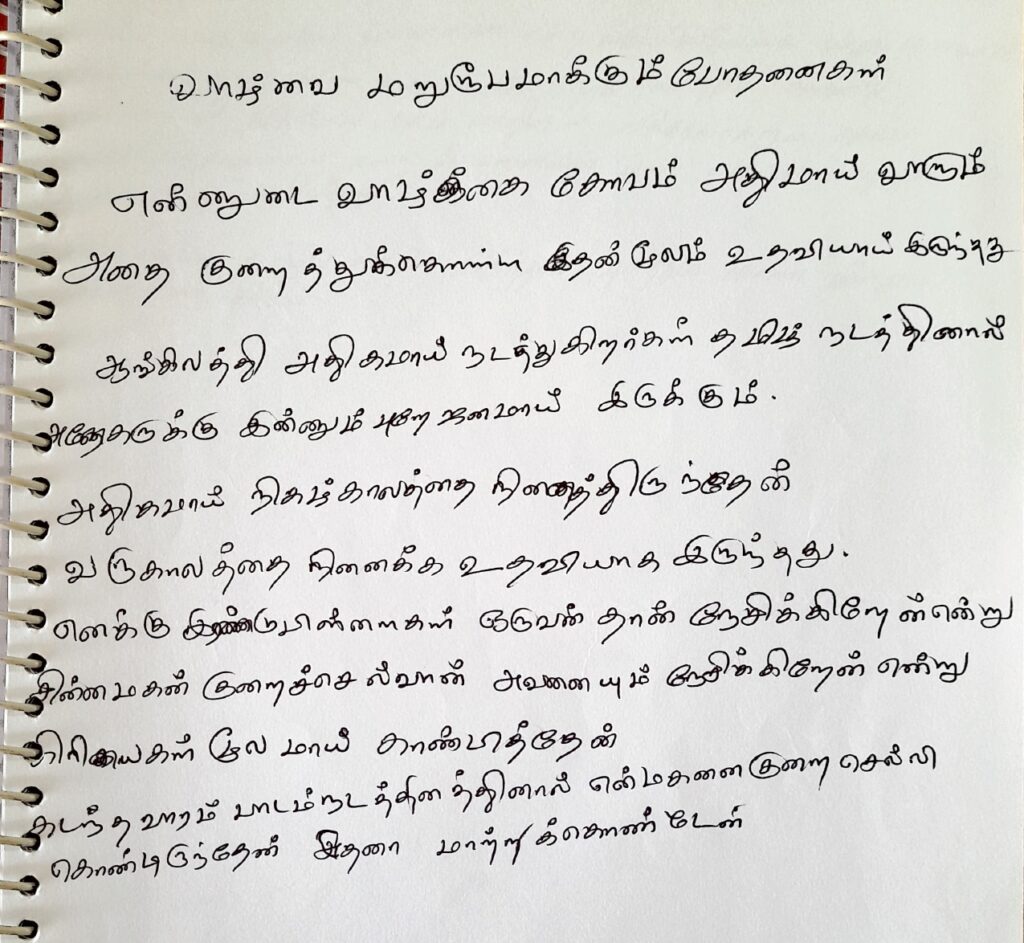 வாழ்வை மறுரூபமாக்கும் போதனைகள்
என்னுடை வாழ்க்கை கோபம் அதிமாய் வாரும்
அதை குறைத்துக்கொள்ள இதன் மூலம் உதவியாய் இருந்தது
ஆங்கிலத்தி அதிகமாய் நடத்துகிறர்கள் தமிழ் நடத்தினால்
அநேகருக்கு இன்னும் புறேஜனமாய் இருக்கும்.
அதிகமாய் நிகழ்காலத்தை நினைத்திருந்தேன்
வருகாலத்தை நினைக்க உதவியாக இருந்தது.
எனக்கு இரண்டுபிள்ளைகள் ஒருவன் தான் நேசிக்கிறேன்என்று
சின்னமகன் குறைச்செல்வான் அவனையும் நேசிக்கிறேன் என்று
கிரியைகள் மூலமாய் காண்பித்தேன்
கடந்த வாரம் பாடம்நடத்தினத்தினால் என்மகனைகுறை செல்லி
கொண்டிருந்தேன் இதனா மாற்றிக்கொண்டேன்